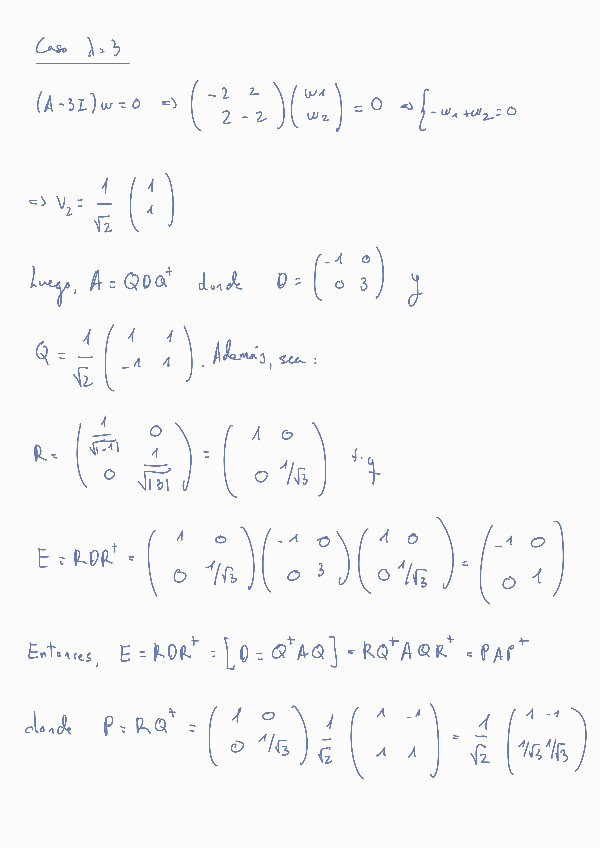 Caso λ=3
(A-3I)w=0 => ( -2 2 ; 2 -2 ) ( w1 ; w2 ) = 0 => { -w1+w2=0
=> V2 = 1/√2 ( 1 ; 1 )
Luego, A = QDQᵗ donde D = ( -1 0 ; 0 3 ) y
Q = 1/√2 ( 1 1 ; -1 1 ). Además, sea:
R = ( 1/√|-1| 0 ; 0 1/√|3| ) = ( 1 0 ; 0 1/√3 ) t.q
E = RDRᵗ = ( 1 0 ; 0 1/√3 ) ( -1 0 ; 0 3 ) ( 1 0 ; 0 1/√3 ) = ( -1 0 ; 0 1 )
Entonces, E = RDRᵗ = [D = QᵗAQ] = RQᵗAQRᵗ = PAPᵗ
donde P = RQᵗ = ( 1 0 ; 0 1/√3 ) 1/√2 ( 1 -1 ; 1 1 ) = 1/√2 ( 1 -1 ; 1/√3 1/√3 )